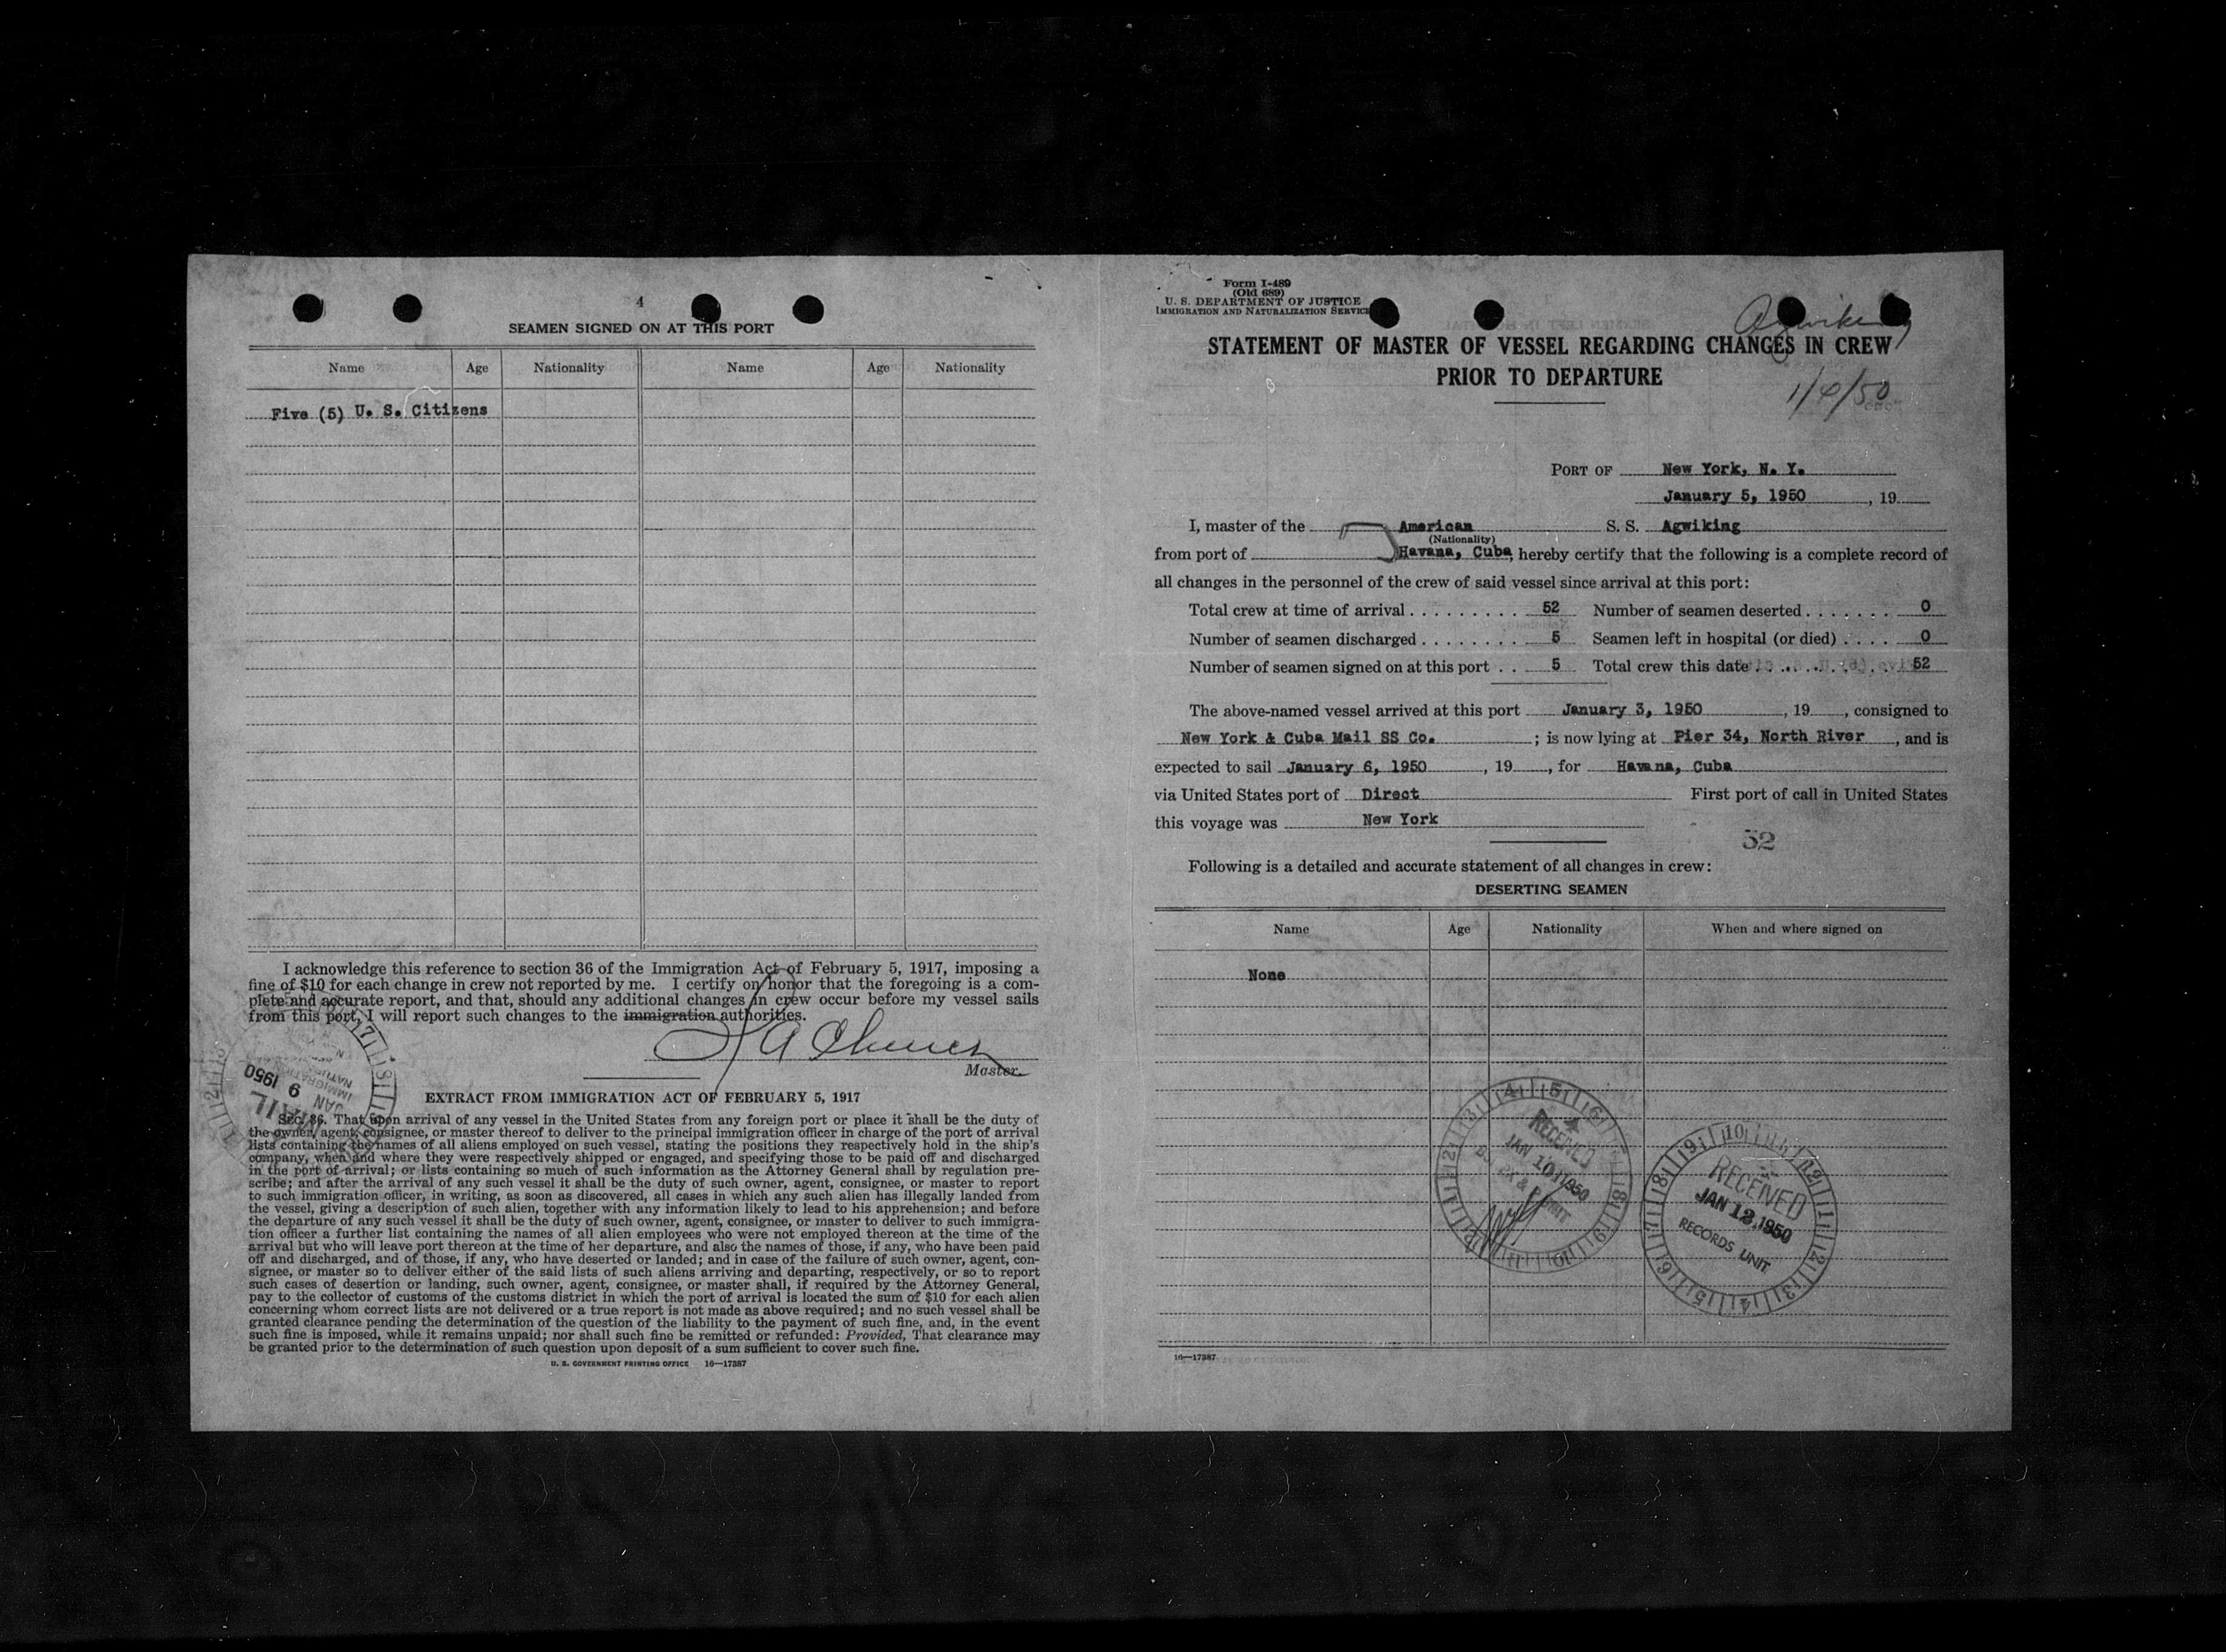 4
SEAMEN SIGNED ON AT THIS PORT
Name Age Nationality Name Age Nationality
Five (5) U. S. Citizens
I acknowledge this reference to section 36 of the Immigration Act of February 5, 1917, imposing a
fine of $10 for each change in crew not reported by me. I certify on honor that the foregoing is a com-
plete and accurate report, and that, should any additional changes in crew occur before my vessel sails
from this port, I will report such changes to the immigration authorities.
Master.
JAN 9 1950
EXTRACT FROM IMMIGRATION ACT OF FEBRUARY 5, 1917
Sec. 36. That upon arrival of any vessel in the United States from any foreign port or place it shall be the duty of
the owner, agent, consignee, or master thereof to deliver to the principal immigration officer in charge of the port of arrival
lists containing the names of all aliens employed on such vessel, stating the positions they respectively hold in the ship's
company, when and where they were respectively shipped or engaged, and specifying those to be paid off and discharged
in the port of arrival; or lists containing so much of such information as the Attorney General shall by regulation pre-
scribe; and after the arrival of any such vessel it shall be the duty of such owner, agent, consignee, or master to report
to such immigration officer, in writing, as soon as discovered, all cases in which any such alien has illegally landed from
the vessel, giving a description of such alien, together with any information likely to lead to his apprehension; and before
the departure of any such vessel it shall be the duty of such owner, agent, consignee, or master to deliver to such immigra-
tion officer a further list containing the names of all alien employees who were not employed thereon at the time of the
arrival but who will leave port thereon at the time of her departure, and also the names of those, if any, who have been paid
off and discharged, and of those, if any, who have deserted or landed; and in case of the failure of such owner, agent, con-
signee, or master so to deliver either of the said lists of such aliens arriving and departing, respectively, or so to report
such cases of desertion or landing, such owner, agent, consignee, or master shall, if required by the Attorney General,
pay to the collector of customs of the customs district in which the port of arrival is located the sum of $10 for each alien
concerning whom correct lists are not delivered or a true report is not made as above required; and no such vessel shall be
granted clearance pending the determination of the question of the liability to the payment of such fine, and, in the event
such fine is imposed, while it remains unpaid; nor shall such fine be remitted or refunded: Provided, That clearance may
be granted prior to the determination of such question upon deposit of a sum sufficient to cover such fine.
U. S. GOVERNMENT PRINTING OFFICE 16—17387
Form I-489
(Old 689)
U. S. DEPARTMENT OF JUSTICE
IMMIGRATION AND NATURALIZATION SERVICE
Agwiking
STATEMENT OF MASTER OF VESSEL REGARDING CHANGES IN CREW
PRIOR TO DEPARTURE
1/6/50
PORT OF New York, N. Y.
January 5, 1950, 19
I, master of the American S. S. Agwiking
(Nationality)
from port of Havana, Cuba, hereby certify that the following is a complete record of
all changes in the personnel of the crew of said vessel since arrival at this port:
Total crew at time of arrival . . . . . . . . . 52 Number of seamen deserted . . . . . . . 0
Number of seamen discharged . . . . . . . . 5 Seamen left in hospital (or died) . . . . 0
Number of seamen signed on at this port . . 5 Total crew this date . . . . . . . . . 52
The above-named vessel arrived at this port January 3, 1950, 19, consigned to
New York & Cuba Mail SS Co. ; is now lying at Pier 34, North River, and is
expected to sail January 6, 1950, 19, for Havana, Cuba
via United States port of Direct First port of call in United States
this voyage was New York
52
Following is a detailed and accurate statement of all changes in crew:
DESERTING SEAMEN
Name Age Nationality When and where signed on
None
RECEIVED
JAN 10 1950
RECEIVED
JAN 12 1950
RECORDS UNIT
16—17387